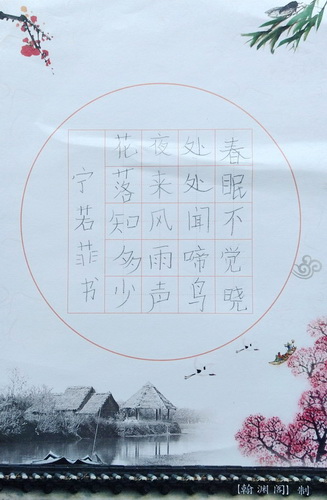 春眠不觉晓
处处闻啼鸟
夜来风雨声
花落知多少
宁若菲书
【翰渊阁】制